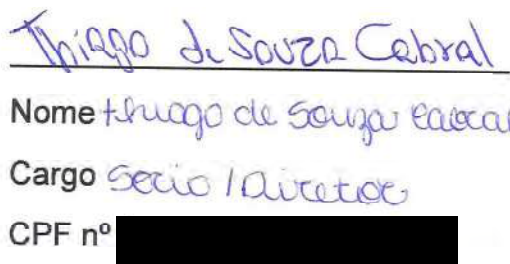 Thiago de Souza Cabral
Nome thiago de Souza Cabral
Cargo Socio / Diretor
CPF nº